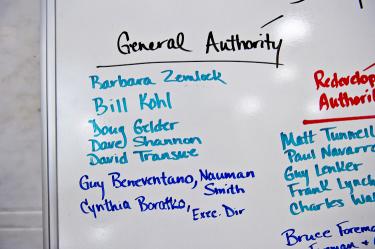 General Authority
Barbara Zemlock
Bill Kohl
Doug Gelder
Dave Shannon
David Transue
Guy Beneventano, Nauman
Smith
Cynthia Boratko, Exec. Dir
Redevelop
Authorit
Matt Tunnell
Paul Navarro
Guy Lenker
Frank Lynch
Charles Wa
Bruce Forema